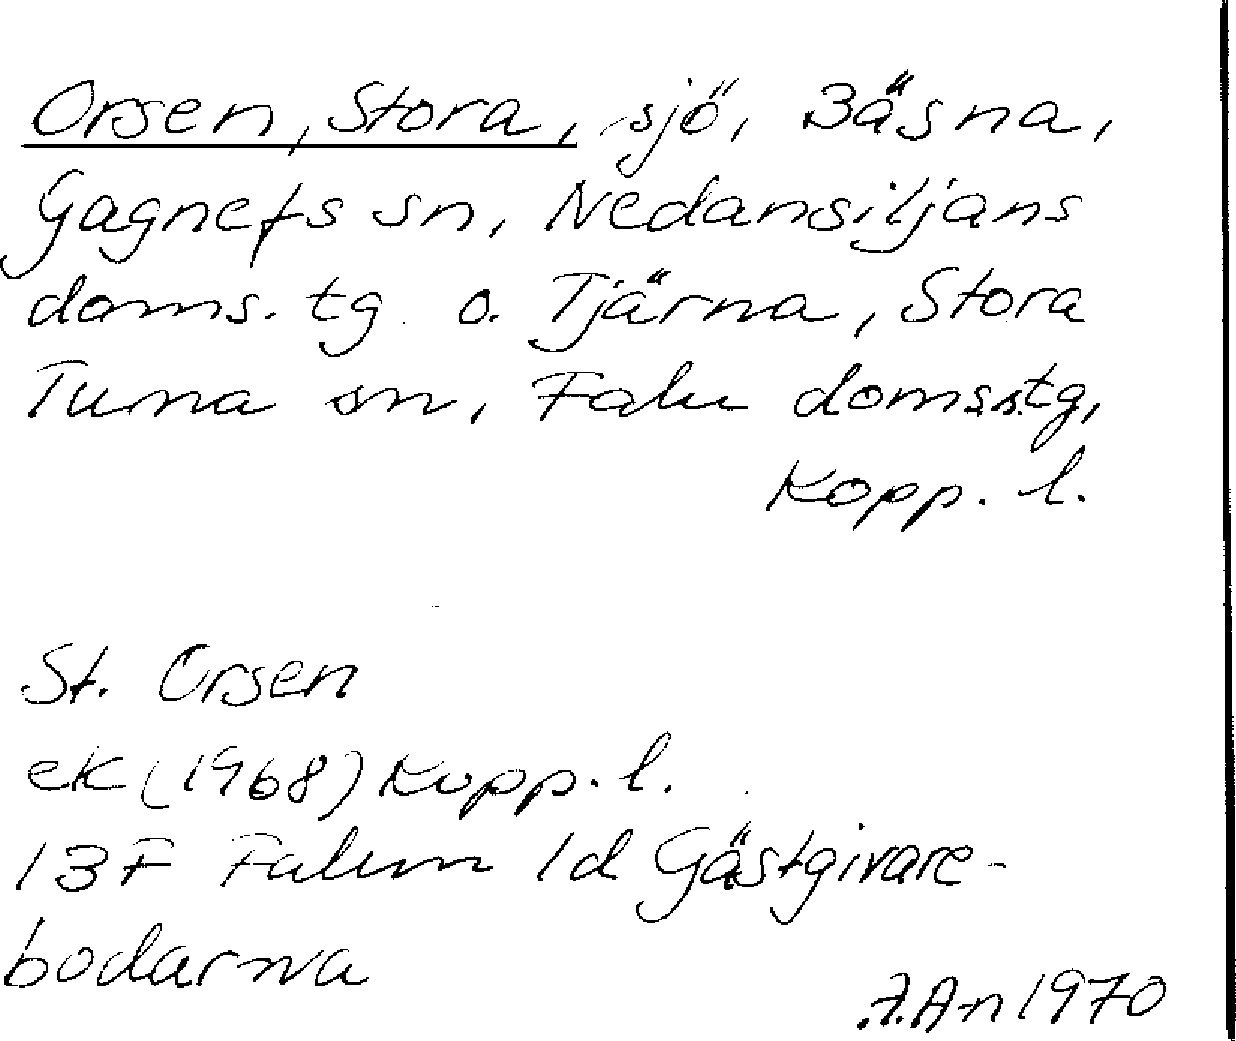 Orsen, Stora, sjö, Bäsna,
Gagnefs sn, Nedansiljans
doms. tg o. Tjärna, Stora
Tuna sn, Falu domss.tg,
Kopp. l.
St. Orsen
ek (1968) Kopp. l.
13F Falun 1d Gästgivare-
bodarna
1970